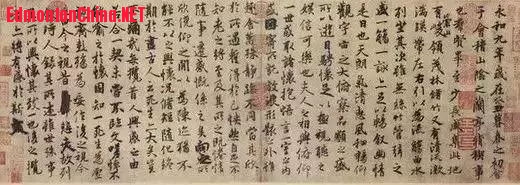 EdmontonChina.NET
永和九年歲在癸丑暮春之初會
于會稽山陰之蘭亭脩稧事
也群賢畢至少長咸集此地
有崇山峻領茂林脩竹又有清流激
湍暎帶左右引以為流觴曲水
列坐其次雖無絲竹管弦之
盛一觴一詠亦足以暢敘幽情
是日也天朗氣清惠風和暢仰
觀宇宙之大俯察品類之盛
所以遊目騁懷足以極視聽之
娛信可樂也夫人之相與俯仰
一世或取諸懷抱悟言一室之內
或因寄所託放浪形骸之外雖
趣舍萬殊靜躁不同當其欣
於所遇暫得於己怏然自足不
知老之將至及其所之既惓情
隨事遷感慨係之矣向之所
欣俛仰之閒以為陳迹猶不
能不以之興懷況脩短隨化終
期於盡古人云死生亦大矣豈
不痛哉每攬昔人興感之由
若合一契未嘗不臨文嗟悼不
能喻之於懷固知一死生為虛
誕齊彭殤為妄作後之視今
亦由今之視昔悲夫故列
敘時人錄其所述雖世殊事
異所以興懷其致一也後之攬
者亦將有感於斯文